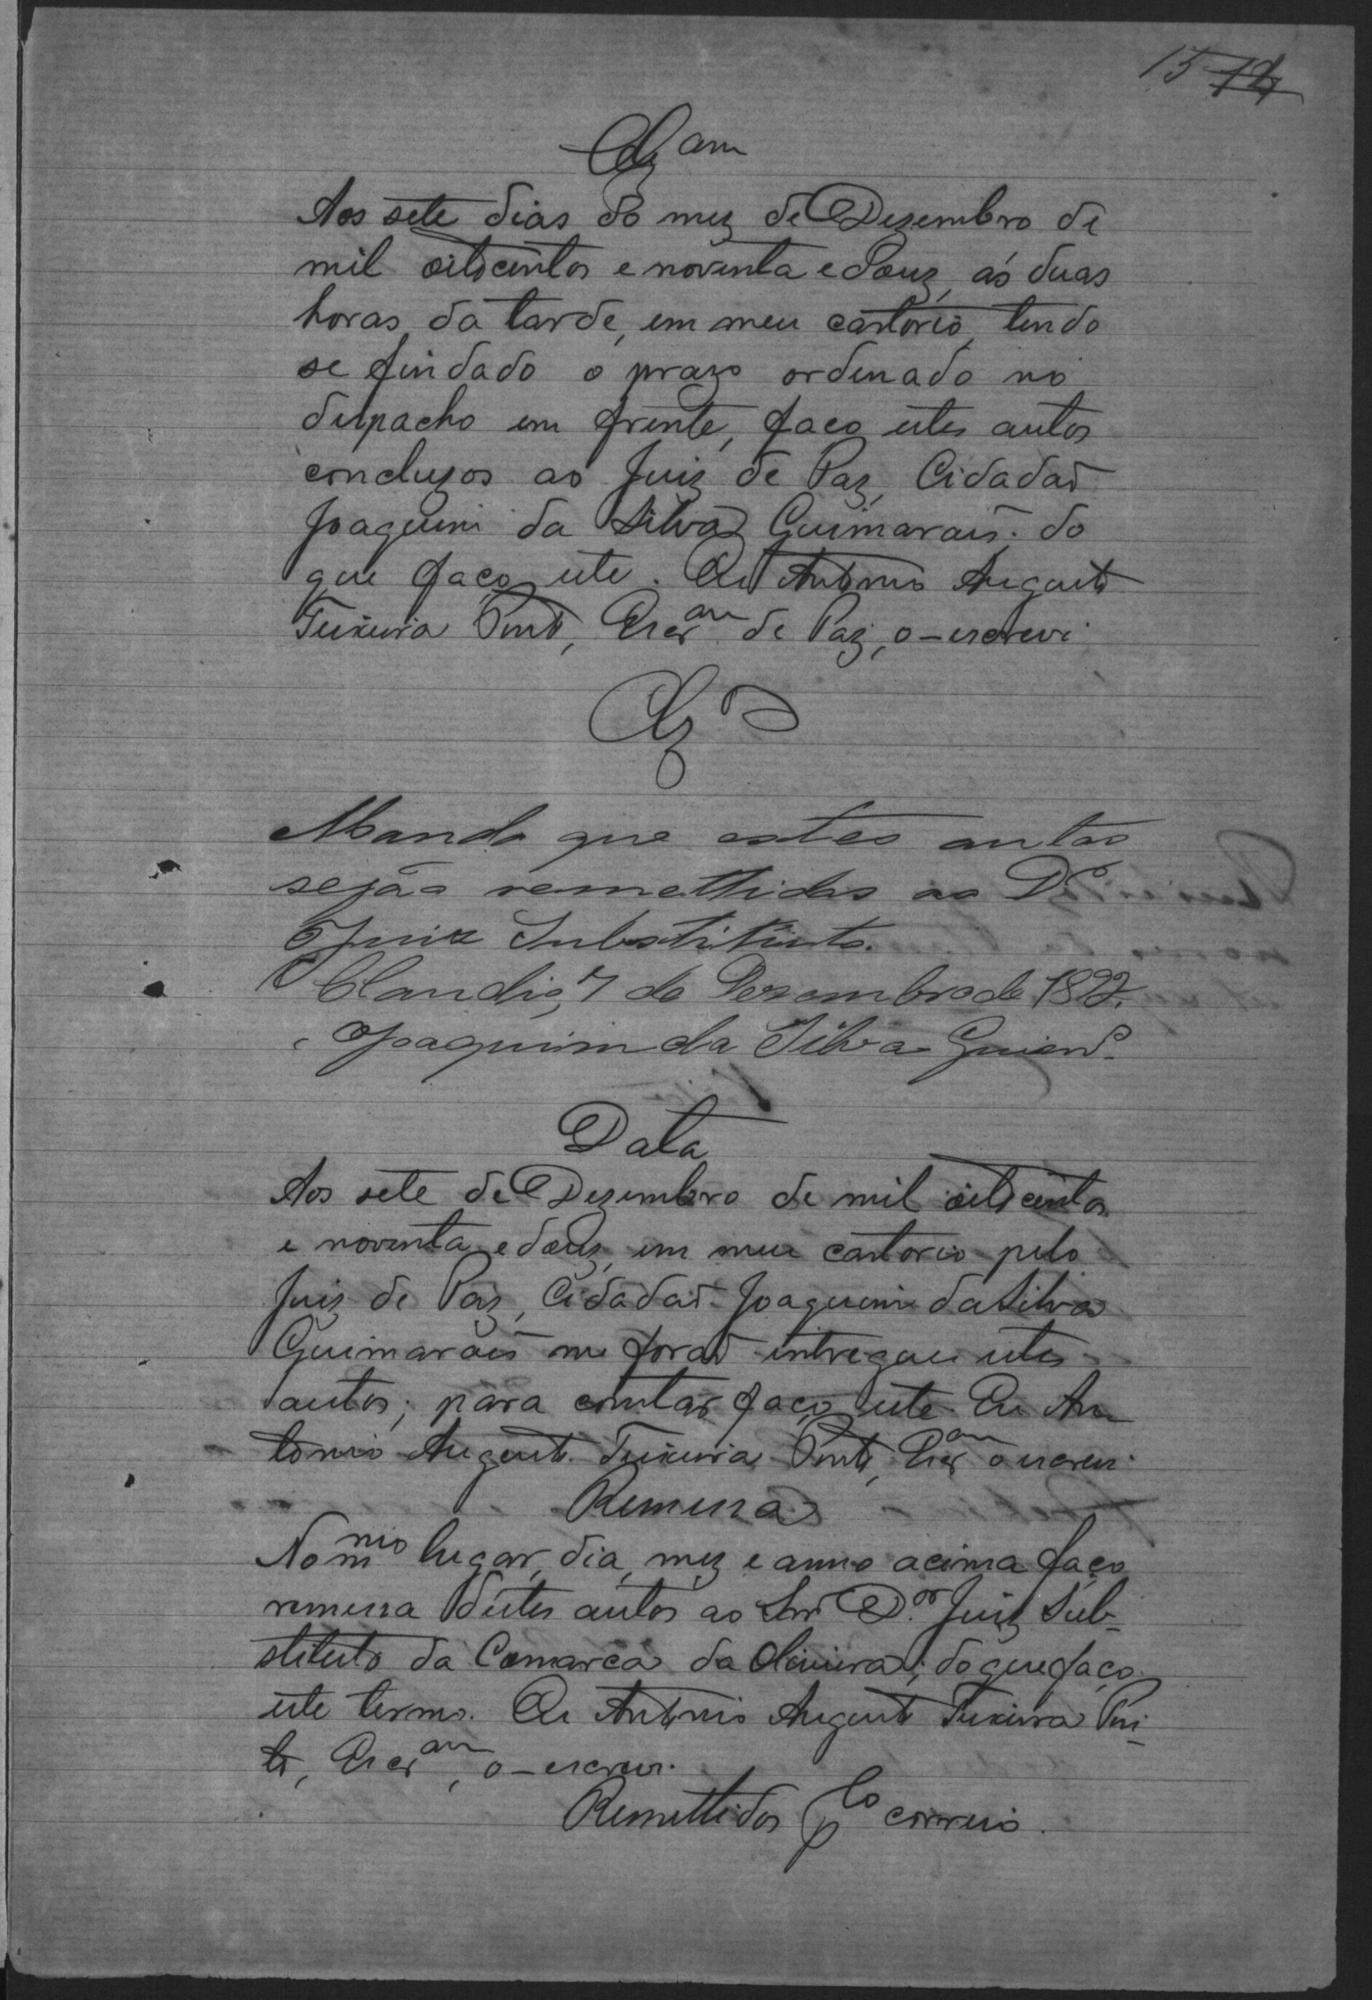 15
Clz am
Aos sete dias do mez de Dezembro de
mil oitocentos e noventa e douz, ás duas
horas da tarde, em meu cartorio, tendo
se findado o prazo ordenado no
despacho em frente, faço estes autos
concluzos ao Juiz de Paz, Cidadaõ
Joaquim da Silva Guimarais. do
que faço este. Eu Antonio Augusto
Teixeira Pinto, Escr am de Paz, o-escrevi
Clz
Mando que estes autos
sejão remettidos ao Dr
Juiz Substituto.
Claudio, 7 de Dezembro de 1892.
Joaquim da Silva Guimes
Data
Aos sete de Dezembro de mil oitocentos
e noventa e douz, em meu cartorio pelo
Juiz de Paz, Cidadaõ Joaquim da Silva
Guimarais me foraõ entregues estes
autos; para constar faço este. Eu An
tonio Augusto Teixeira Pinto, Escr am o escrevi.
Remessa
No mmo lugar, dia, mez e anno acima faço
remessa d'estes autos ao Snr Dor Juiz Sub-
stituto da Comarca da Oliveira; do que faço
este termo. Eu Antonio Augusto Teixeira Pin-
to, Escr am, o-escrevi.
Remettidos plo correio.